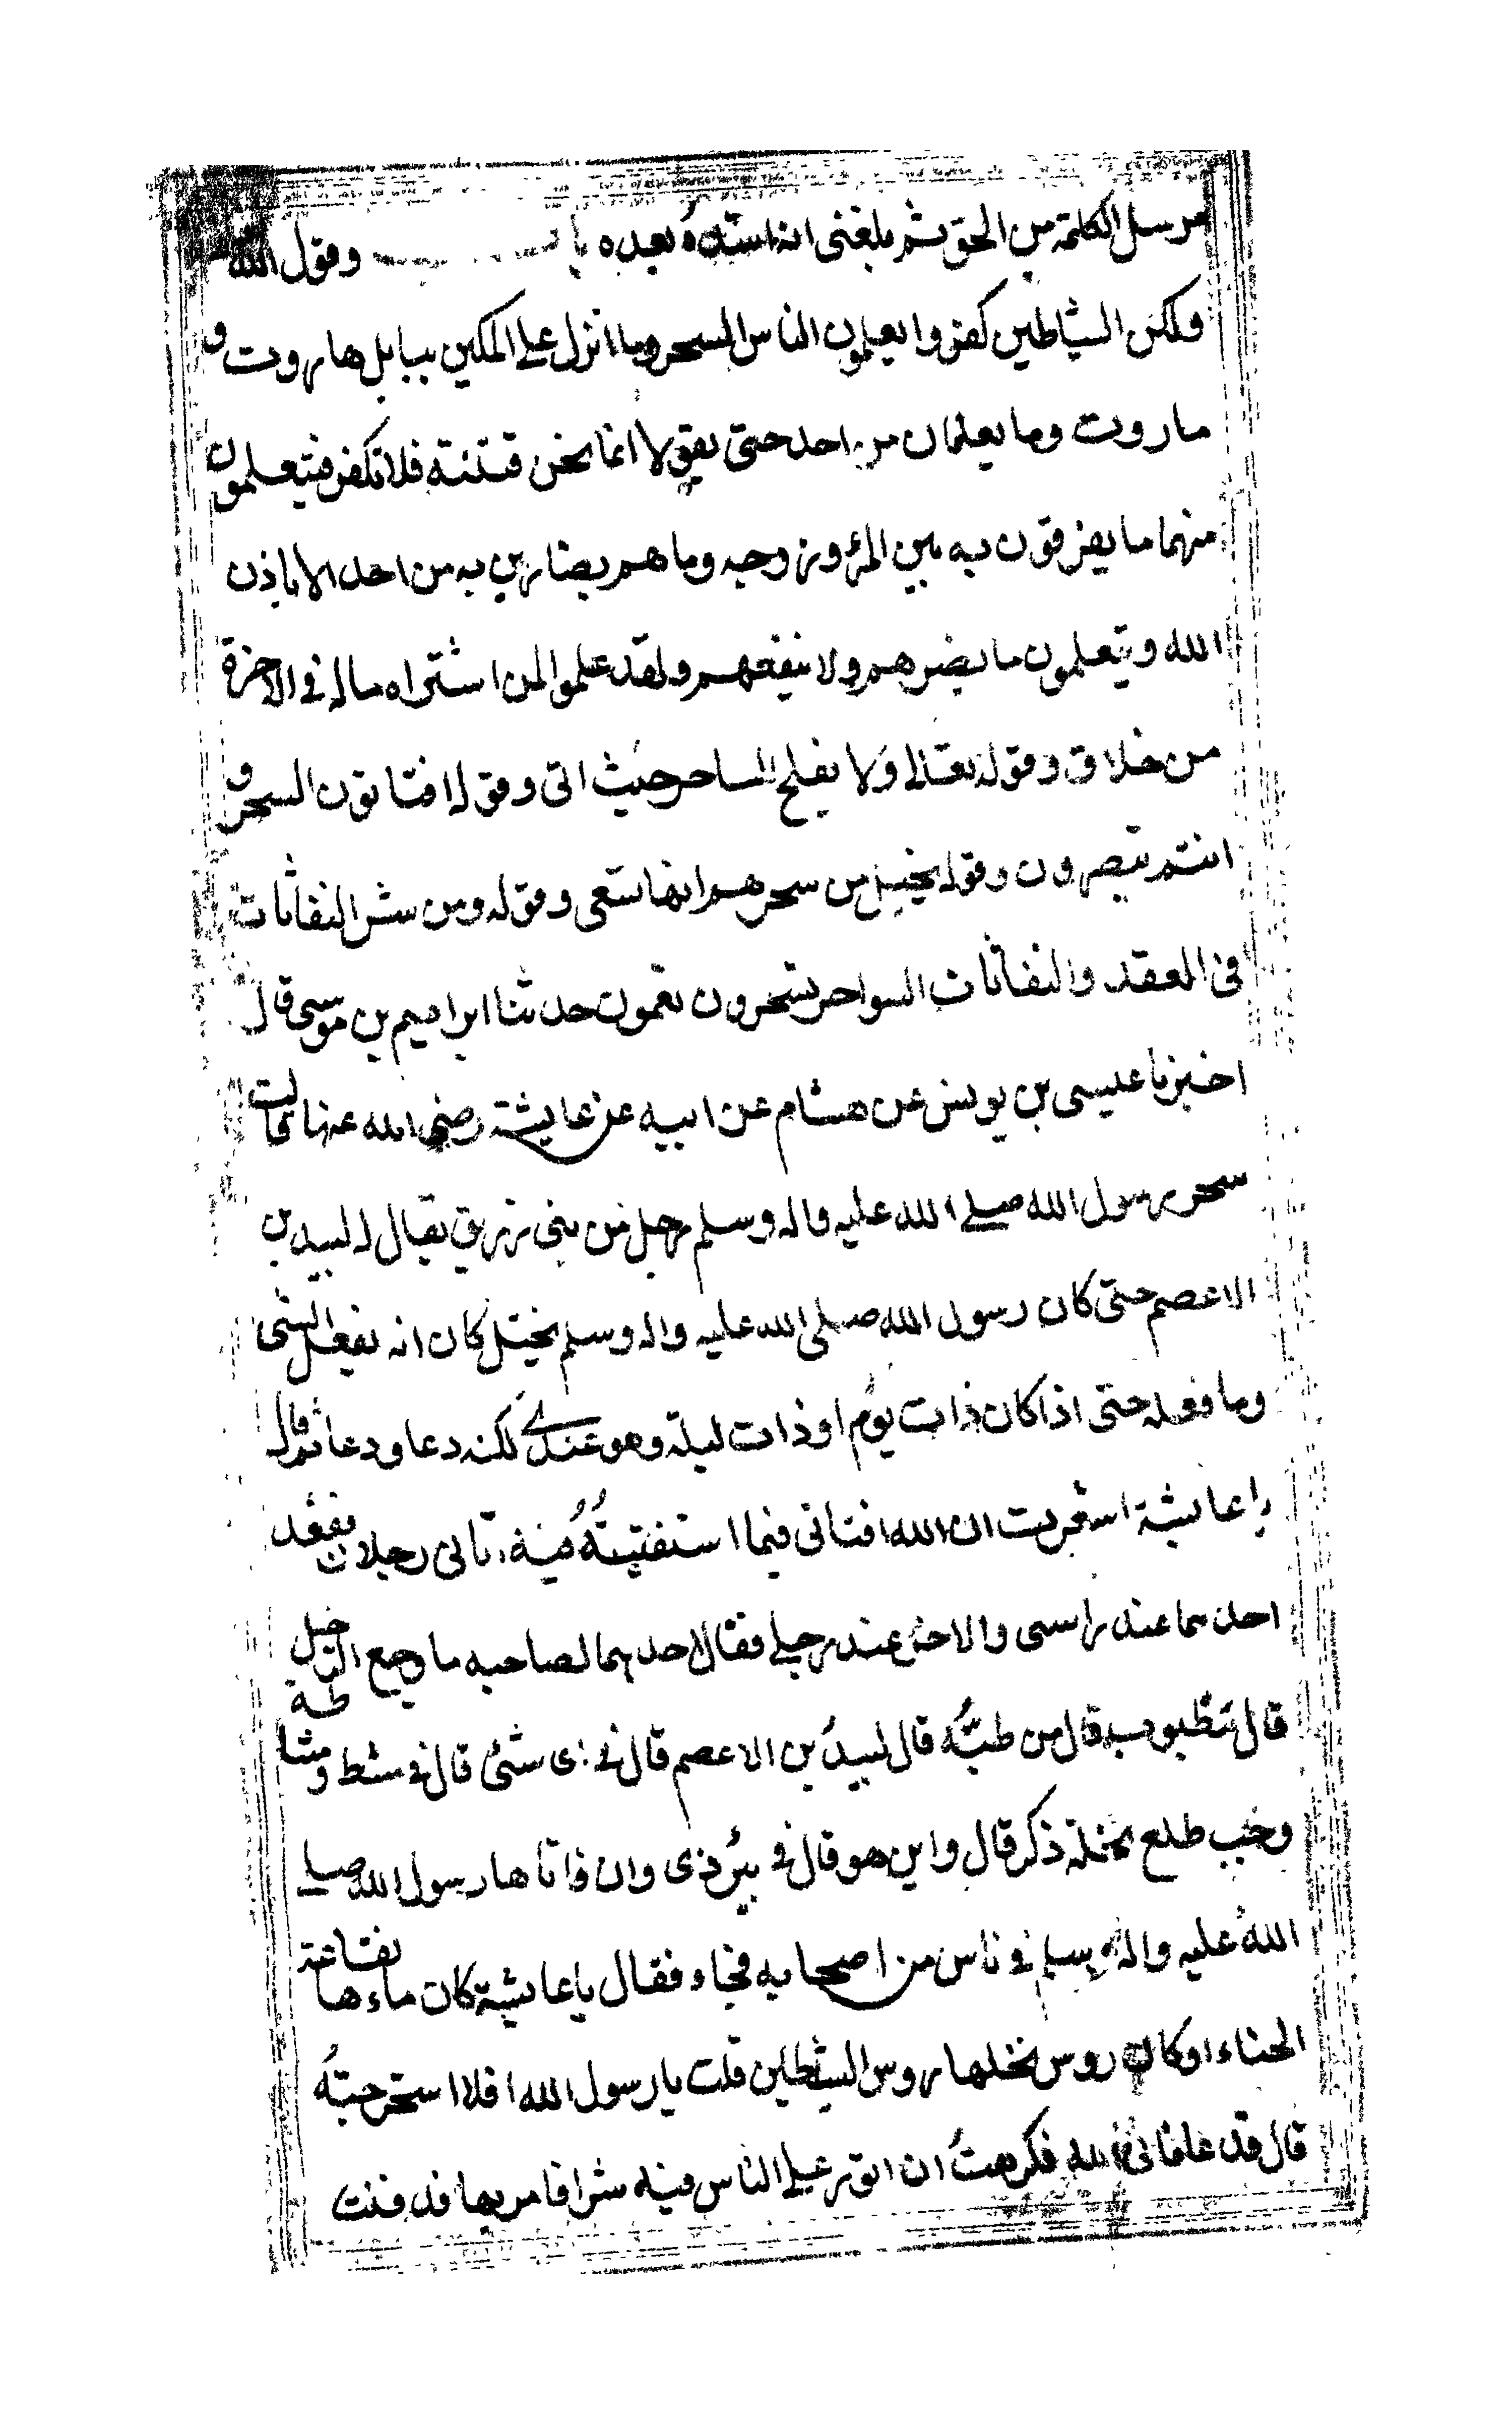 مرسل الكلمة من الحق ثم بلغني انه اسنده بعده باب وقول الله
ولكن الشياطين كفروا يعلمون الناس السحر وما انزل على الملكين ببابل هاروت و
ماروت وما يعلمان من احد حتى يقولا انما نحن فتنة فلا تكفر فيتعلمون
منهما ما يفرقون به بين المرء وزوجه وما هم بضارين به من احد الا باذن
الله ويتعلمون ما يضرهم ولا ينفعهم ولقد علموا لمن اشتراه ماله في الاخرة
من خلاق وقوله تعالى ولا يفلح الساحر حيث اتى وقوله افتاتون السحر و
انتم تبصرون وقوله يخيل من سحرهم انها تسعى وقوله ومن شر النفاثات
في العقد والنفاثات السواحر تسحرون تعمون حدثنا ابراهيم بن موسى قال
اخبرنا عيسى بن يونس عن هشام عن ابيه عن عايشة رضي الله عنها قالت
سحر رسول الله صلى الله عليه واله وسلم رجل من بني زريق يقال له لبيد بن
الاعصم حتى كان رسول الله صلى الله عليه واله وسلم يخيل كان انه يفعل الشي
وما فعله حتى اذا كان ذات يوم او ذات ليلة وهو عندي لكنه دعا ودعا ثم قال
يا عايشة اشعرت ان الله افتاني فيما استفتيته فيه اتاني رجلان فقعد
احدهما عند راسي والاخر عند رجلي فقال احدهما لصاحبه ما وجع الرجل
قال مطبوب قال من طبه قال لبيد بن الاعصم قال في اي شئ قال في مشط ومشاطة
وجب طلع نخلة ذكر قال واين هو قال في بئر ذي وان فاتاها رسول الله صلى
الله عليه واله وسلم في ناس من اصحابه فجاء فقال يا عايشة كان ماءها نقاعة
الحناء او كان روس نخلها روس الشيطين قلت يا رسول الله افلا استخرجته
قال قد عافاني الله فكرهت ان اثور على الناس فيه شرا فامر بها فدفنت